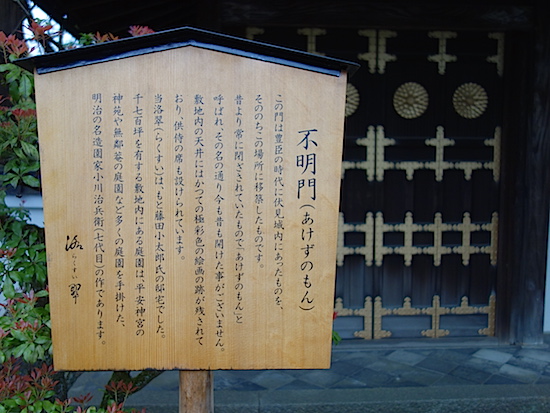 不明門(あけずのもん)
この門は豊臣の時代に伏見城内にあったものを、
そののちこの場所に移築したものです。
昔より常に閉ざされていたもので「あけずのもん」と
呼ばれ、その名の通り今も昔も開けた事がございません。
敷地内の天井にはかつての極彩色の絵画の跡が残されて
おり、供侍の席も設けられています。
当洛翠(らくすい)は、もと藤田小太郎氏の邸宅でした。
千七百坪を有する敷地内にある庭園は、平安神宮の
神苑や無鄰菴の庭園など多くの庭園を手掛けた、
明治の名造園家小川治兵衛(七代目)の作であります。
洛翠
らくすい